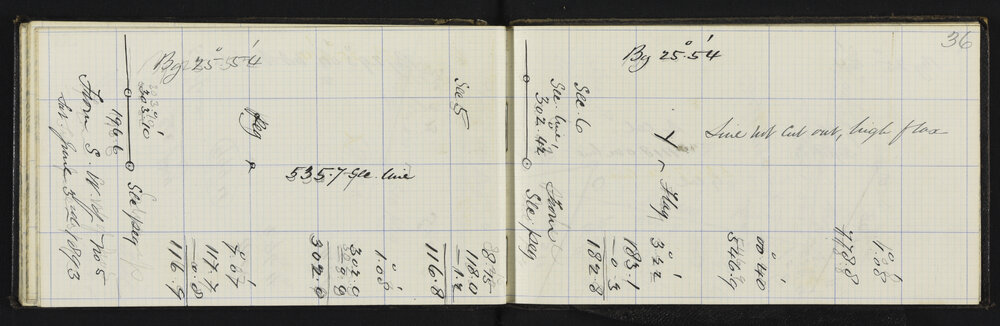 36
By 25° 54'
303° 10'
196.6
Sec peg
From S. W. of No 5
1893
Peg
535.7 Sec. line
7° 07'
117.7
0.8
116.9
1° 00'
302.0
302.0
Sec 5
88.45
118.0
1.2
116.8
By 25° 54'
Sec. 6
Sec. line
302° 42'
From
Sec peg
Line not cut out, high flax
Flag
3° 22'
183.1
0.3
182.8
00° 40'
546.9
1° 08'
778.8